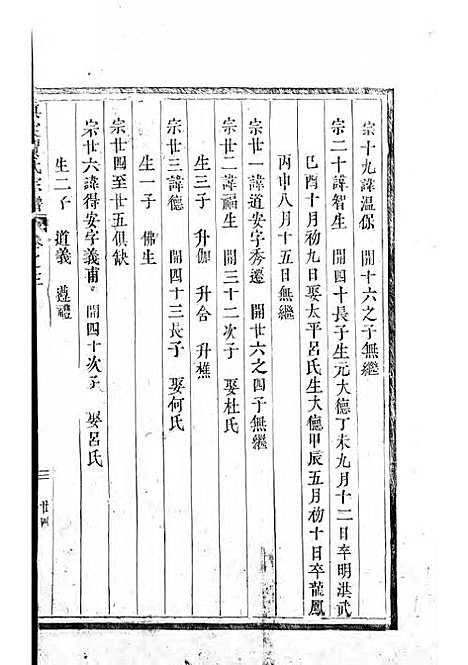 宗十九諱温保　開十六之子無繼
宗二十諱智生　開四十長子生元大德丁未九月十二日卒明洪武
己酉十月初九日娶太平呂氏生大德甲辰五月初十日卒龍鳳
丙申八月十五日無繼
宗廿一諱道安字秀遷　開廿六之四子無繼
宗廿二諱福生　開三十二次子　娶杜氏
生三子　升伽　升合　升樵
宗廿三諱德　開四十三長子　娶何氏
生一子　佛生
宗廿四至廿五俱缺
宗廿六諱得安字義甫　開四十次子　娶呂氏
生二子　道義　遵禮
氏宗譜
廿四